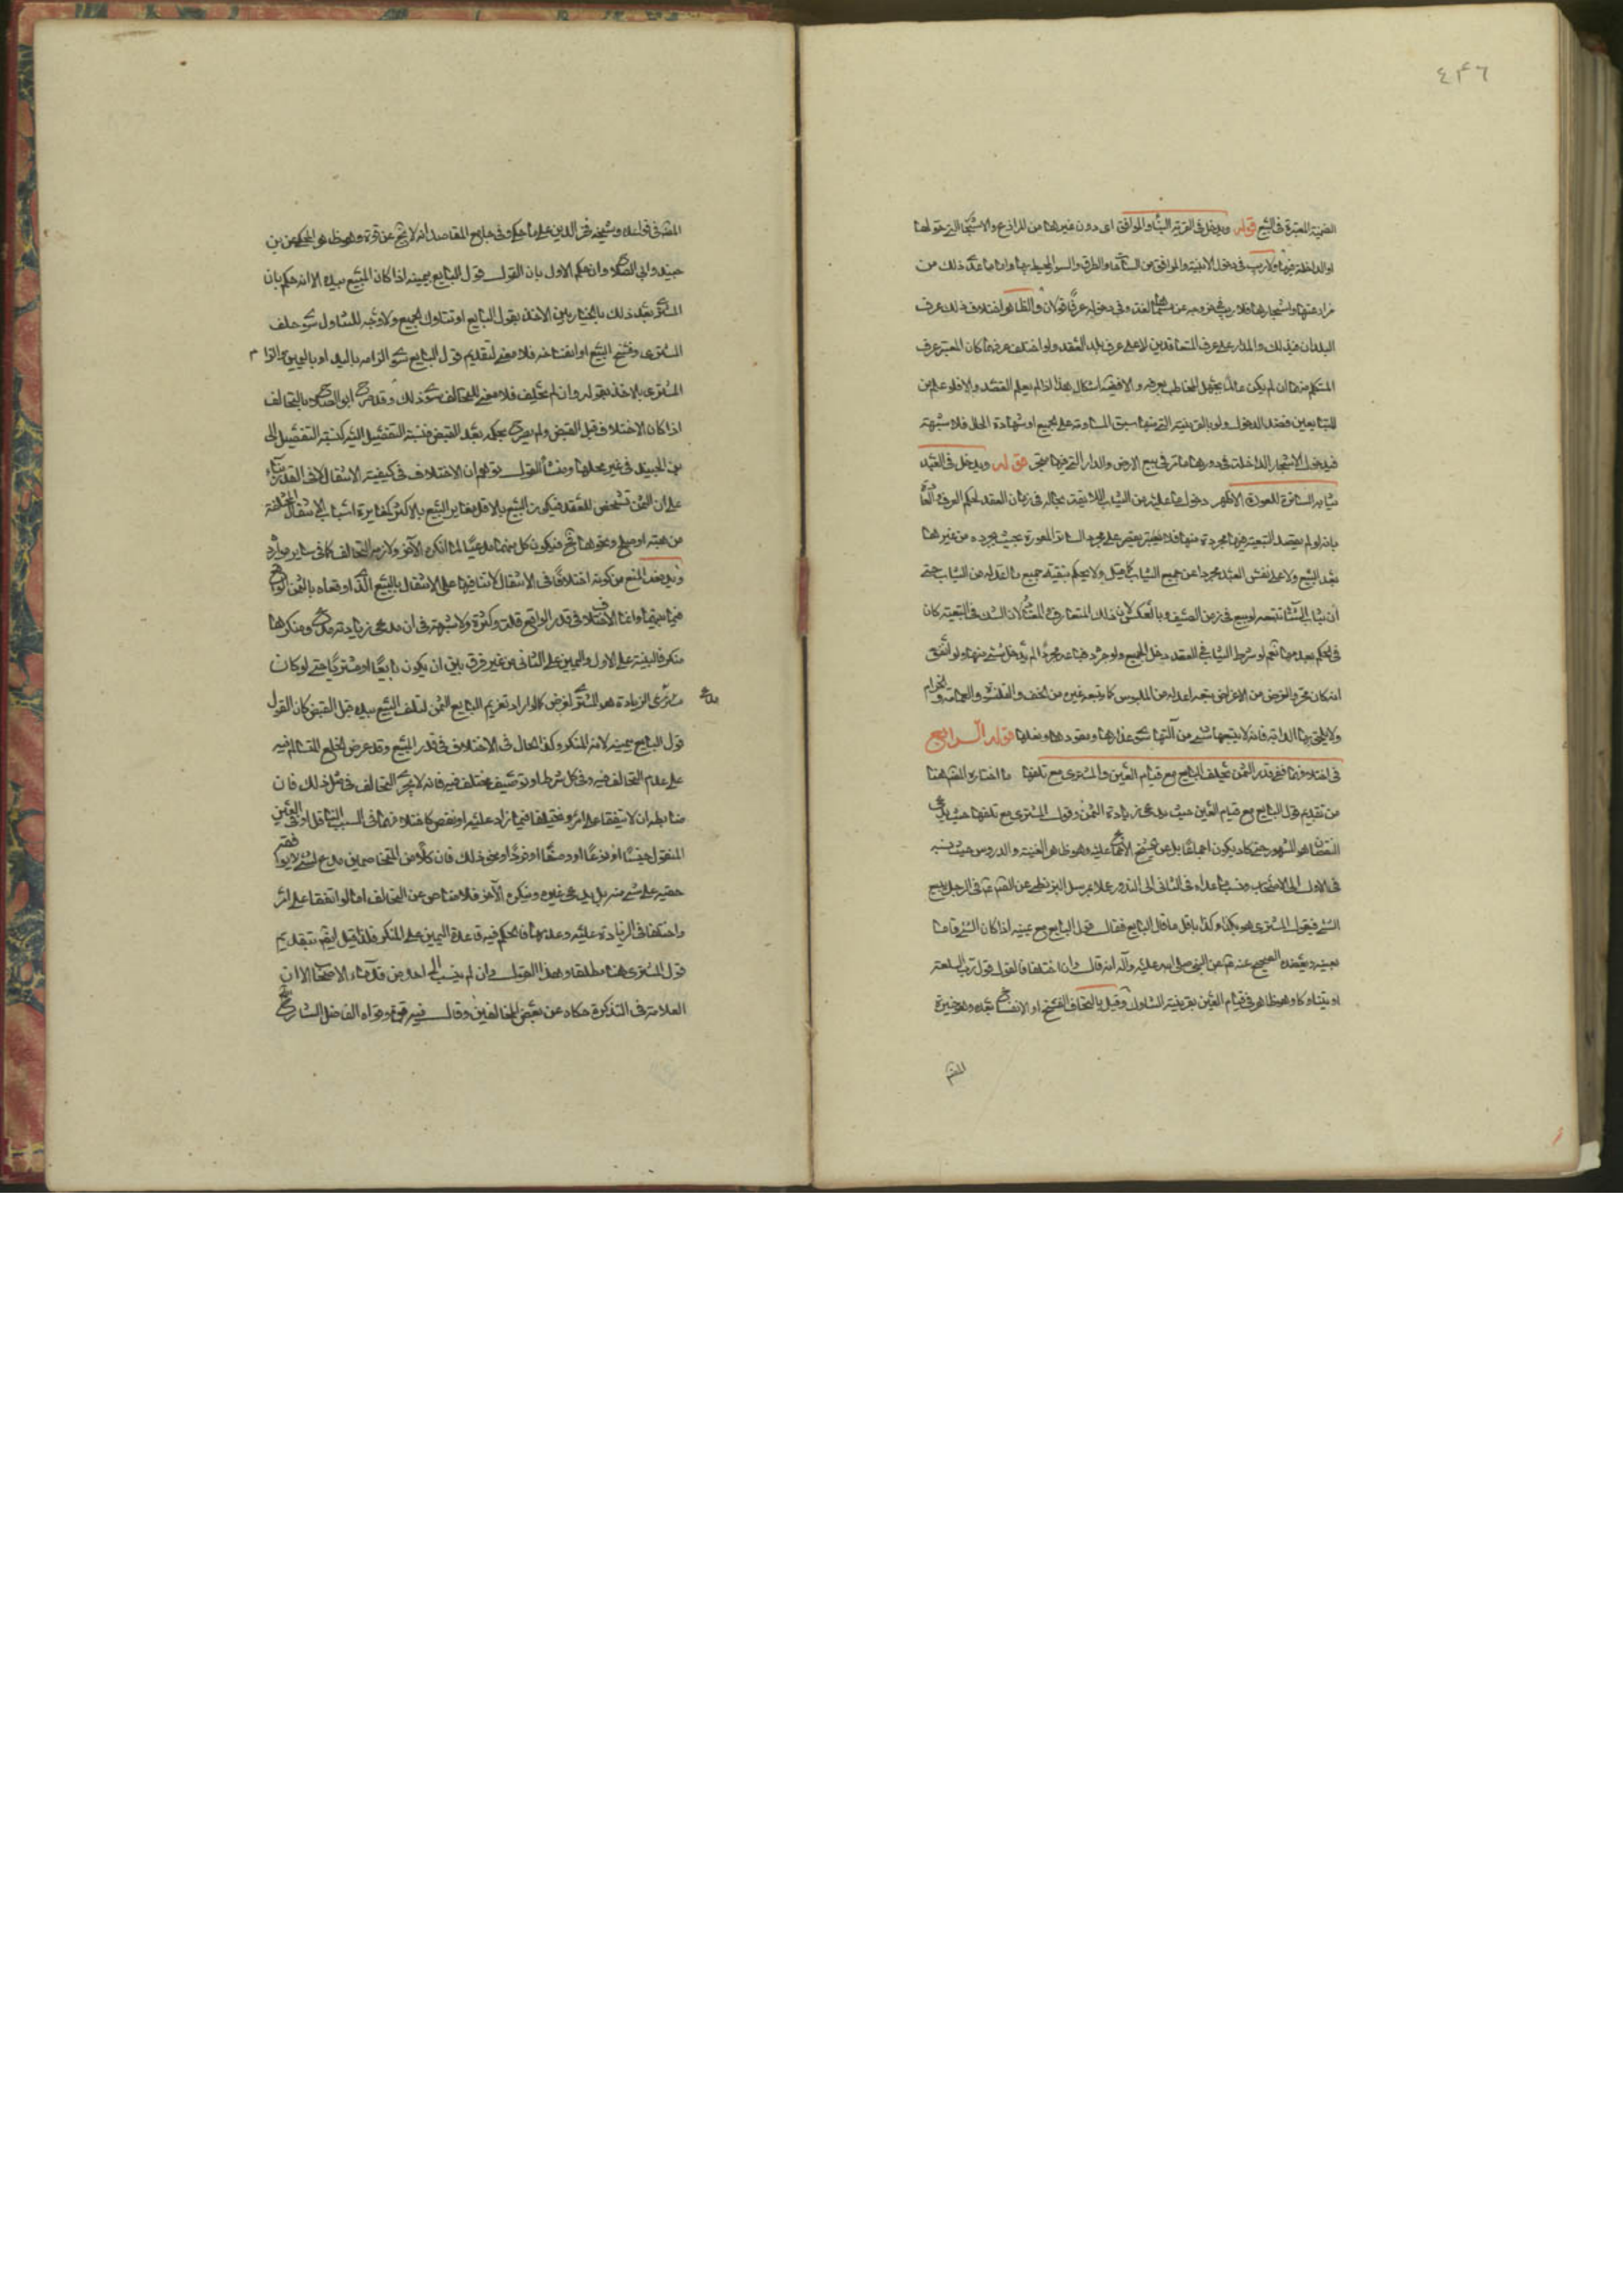 ٤٣٦
الضميمة المعتبرة في البيع قوله ويدخل في القرية البناء والمرافق اى دون غيرها من المزارع والاشجار التي حولها
او الداخلة فيها ولا ريب في دخول الابنية والمرافق من الساحات والطرق والسور المحيط بها واما ما عدا ذلك من
مزارعها واشجارها فلا ريب في خروجه عن العقد وفي دخوله عرفا قولان والظاهر اختلاف ذلك عرف
البلدان فيذلك والمدار على عرف المتعاقدين لا على عرف بلد العقد ولو اختلف عرفهما كان المعتبر عرف
المتكلم منهما ان لم يكن عالما بجهل المخاطب بعرفه والا ففيه اشكال هذا اذا لم يعلم القصد والا فلو علم من
المتبايعين قصد الدخول ولو بالقرينة التي منها سبق المساومة على الجميع او شهادة الحال فلا شبهة
فيدخل الاشجار الداخلة في دورها ما مر في بيع الارض والدار التي فيها شجر قوله ويدخل في العبد
ثيابه الساترة للعورة الاظهر دخول ما عليه من الثياب اللائقة بحاله في زمان العقد لحكم العرف
بانه لو لم يقصد التبعية فيها مجردة منها فلا يعتبر بقصر على مجرد الساتر للعورة بحيث يجرده من غيرها
بعد البيع ولا على نفس العبد مجردا عن جميع الثياب كما قيل ولا يحكم بتبعية جميع ما اعد له من الثياب حتى
ان ثياب الشتاء تتبعه لو بيع في زمن الصيف وبالعكس لان ذلك المتعارف
في الحكم بعدمها نعم لو شرط الثياب في العقد دخل الجميع ولو جرد عنها عند لم يدخل شئ منها ولو اتفق
امكان تجرد لغرض من الاغراض تبعه ما عد له من الملبوس كما يتبعه غيره من الخف والقلنسوة والعمامة والحزام
ولا يلحق بها الدابة فانه لا يتبعها شئ من آلتها سوى عذارها ومقودها ونعلها قوله الرابع
في اختلافهما ففي قدر الثمن يحلف البايع مع قيام العين والمشترى مع تلفها ما اختاره المص هنا
من تقديم قول البايع مع قيام العين حيث يدعى زيادة الثمن وقول المشترى مع تلفها حيث يدعى
النقصان هو المشهور حتى كاد يكون اجماعا بل عن الشيخ الاجماع عليه وهو ظاهر الغنية والدروس حيث نسبه
في الاول الى الاصحاب ونسب ما عداه في الثاني الى الندور عملا بمرسل البزنطى عن الصم ع في الرجل يبيع
الشئ فيقول المشترى هو بكذا وكذا باقل ما قال البايع فقال القول قول البايع مع يمينه اذا كان الشئ قائما
بعينه ويعضده الصحيح عنه ع عن النبى صلى الله عليه وآله انه قال وان اختلفا فالقول قول رب السلعة
او يتتاركا وهو ظاهر في قيام العين بقرينة التتارك وقيل بالتحالف الفسخ او الانفساخ بعده وهو خيرة
المص
المص في قواعده وشيخه فخر الدين على ما حكى وفي جامع المقاصد انه لا يخ عن قوة وهو ظاهر المحكى عن بن
جنيد وابى الصلاح وان حكم الاول بان القول قول البايع بيمينه اذا كان المبيع بيده الا انه حكم بان
المشترى بعد ذلك بالخيار بين الاخذ بقول البايع او تتارك البيع ولا وجه للتتارك سوى حلف
المشترى وفسخ البيع او انفساخه فلا معنى لتقديم قول البايع سوى الزامه باليد او باليمين والزام
المشترى بالاخذ بقوله وان لم يحلف فلا معنى للتحالف سوى ذلك وقد صرح ابو الصلاح بالتحالف
اذا كان الاختلاف قبل القبض ولم يصرح بحكمه بعد القبض فنسبة التفصيل اليه كنسبة التفصيل الى
بن الجنيد في غير محلها ومنشأ القول توهم ان الاختلاف في كيفية الانتقال لا في القدر بناء
على ان الثمن مشخص للعقد فيكون البيع بالاقل مغاير البيع بالاكثر كمغايرة اسباب الانتقال المختلفة
من هبة او صلح ونحوها فيكون كل منهما مدعيا لما انكره الآخر ولازمه التحالف كما في ساير موارده
ويدفعه المنع من كونه اختلافا في الانتقال لاتفاقهما على الانتقال بالبيع الذى اوقعاه بالثمن الواقع
فيما بينهما وانما الاختلاف في قدر الواقع قلة وكثرة ولا شبهة في ان مدعى زيادته مدع ومنكرها
منكر فالبينة على الاول واليمين على الثانى من غير فرق بين ان يكون بايعا او مشتريا حتى لو كان
مدعى الزيادة هو المشترى لغرض كما لو اراد تغريم البايع الثمن لتلف البيع بيده قبل القبض كان القول
قول البايع بيمينه لانه المنكر وكذا الحال في الاختلاف في قدر المبيع وقد عرض الخلع للتسالم فيه
على عدم التحالف فيه وفي كل شرط او توصيف مختلف فيه فانه لا يجرى التحالف في مثل ذلك فان
ضابطه ان لا يتفقا على امر ويختلفا فيما زاد عليه او نقص كاختلافهما في السبب الناقل او في العين
المنقول جنسا او نوعا او وصفا او فردا ونحو ذلك فان كلا من المتخاصمين مدع لشئ لا يوافقه
خصمه على شئ منه بل يدعى غيره وينكره الآخر فلا مناص عن التحالف اما لو اتفقا على امر
واختلفا في الزيادة عليه وعدمها فالحكم فيه قاعدة اليمين على المنكر فلذا قيل ايضا بتقديم
قول المشترى هنا مطلقا وهذا القول وان لم ينسب الى احد من قدماء الاصحاب الا ان
العلامة في التذكرة حكاه عن بعض المخالفين وقال فيه قوة وقواه الفاضل الشارح